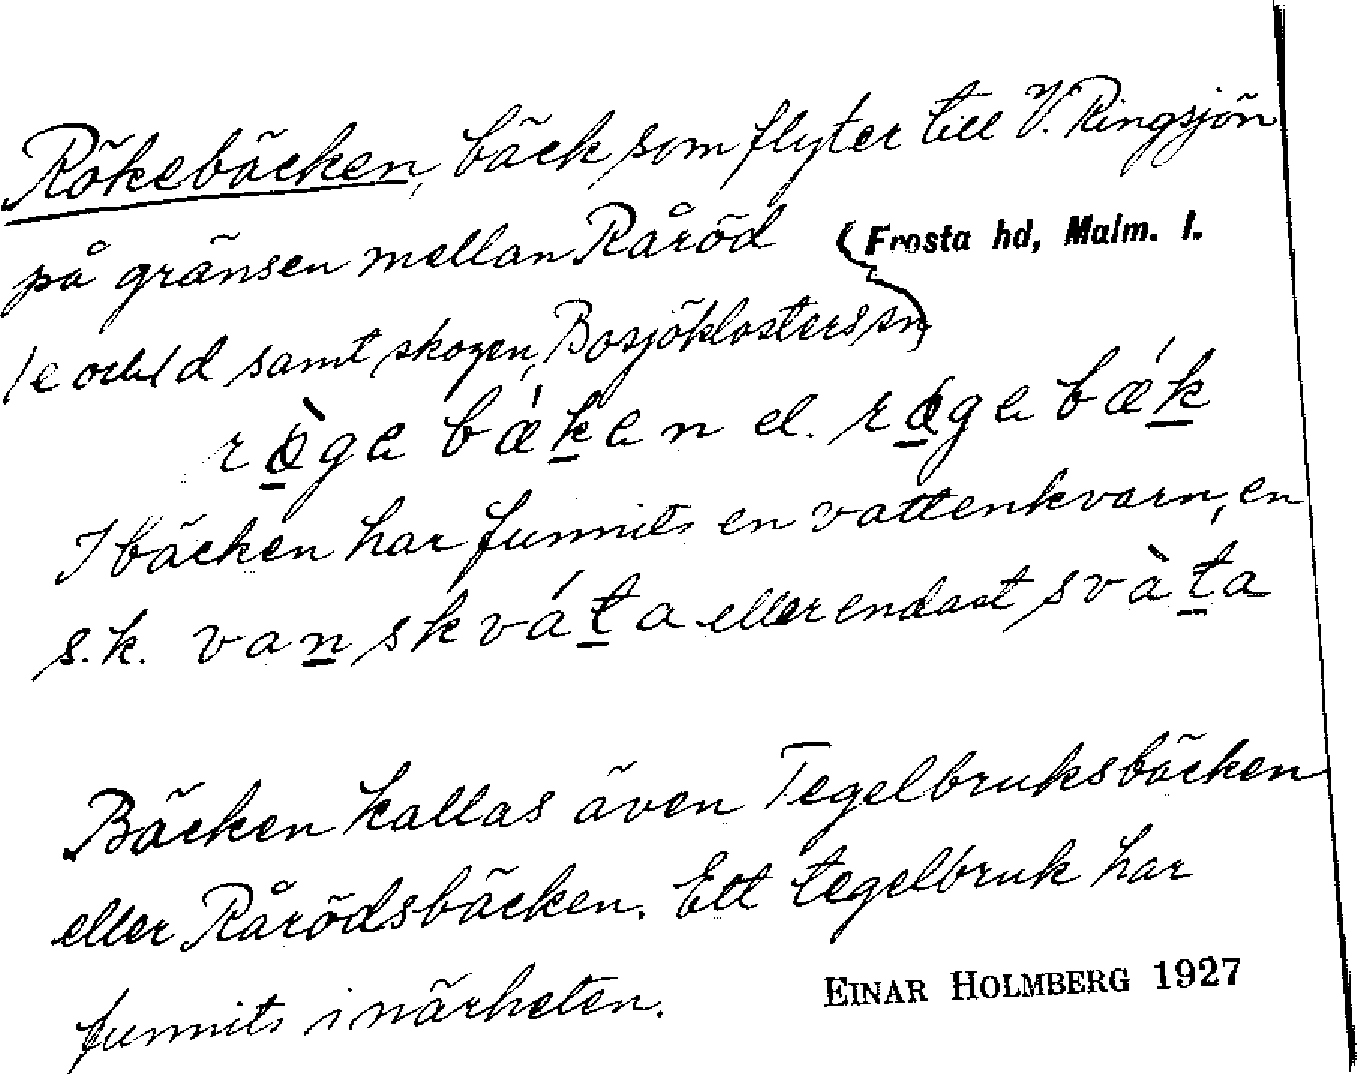 Rökebäcken, bäck som flyter till V. Ringsjön
på gränsen mellan Råröd Frosta hd, Malm. l.
1e och 1d samt skogen, Bosjöklosters sn
rò̱ge bǽḵen el. ró̱ge bǽḵ
I bäcken har funnits en vattenkvarn, en
s.k. vaṉskváṯa eller endast svàṯa
Bäcken kallas även Tegelbruksbäcken
eller Rårödsbäcken. Ett tegelbruk har
funnits i närheten. EINAR HOLMBERG 1927